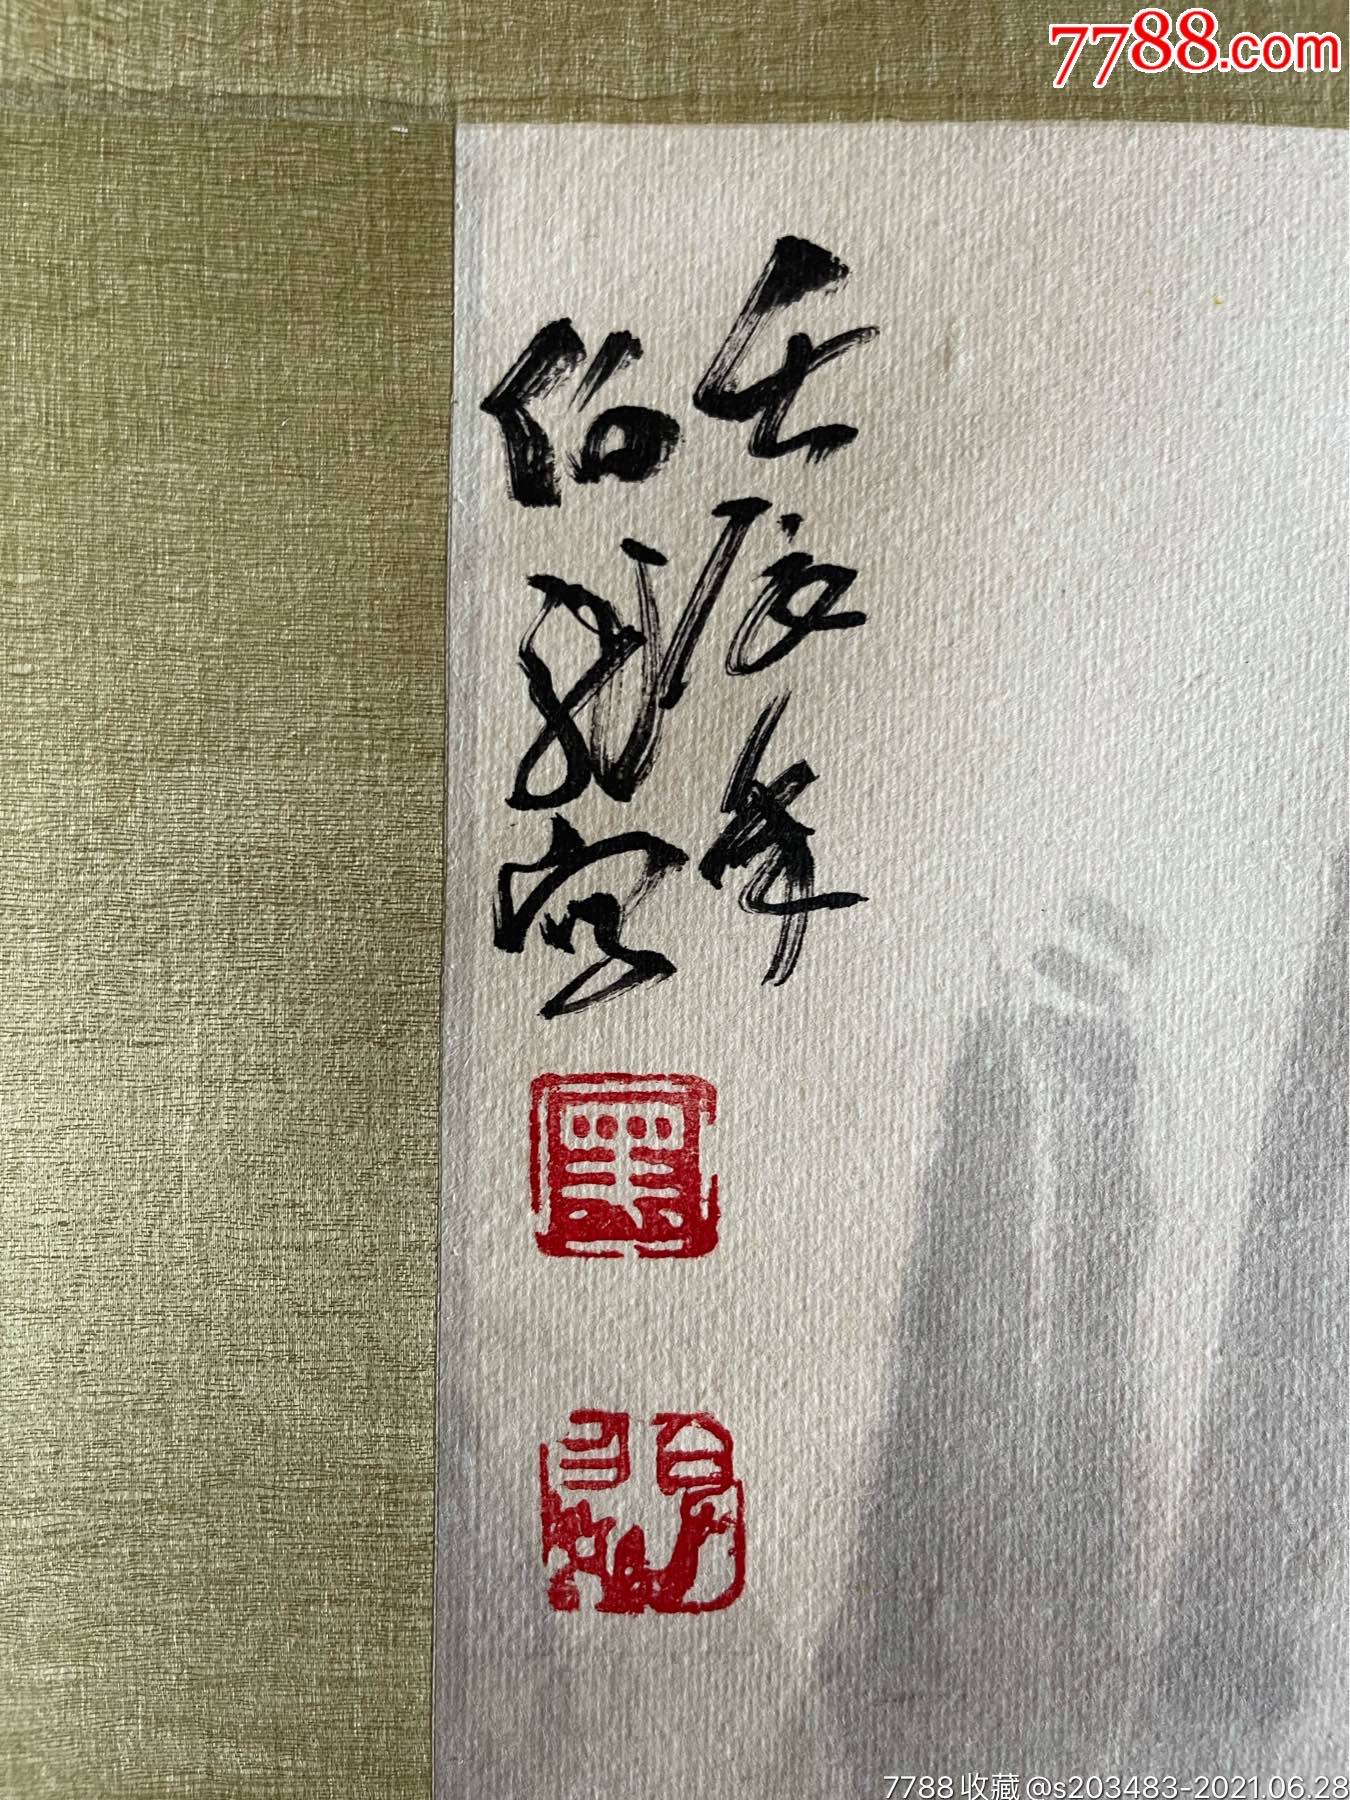 7788.com
壬辰年
伯龍宮
墨
7788收藏@s203483-2021.06.28